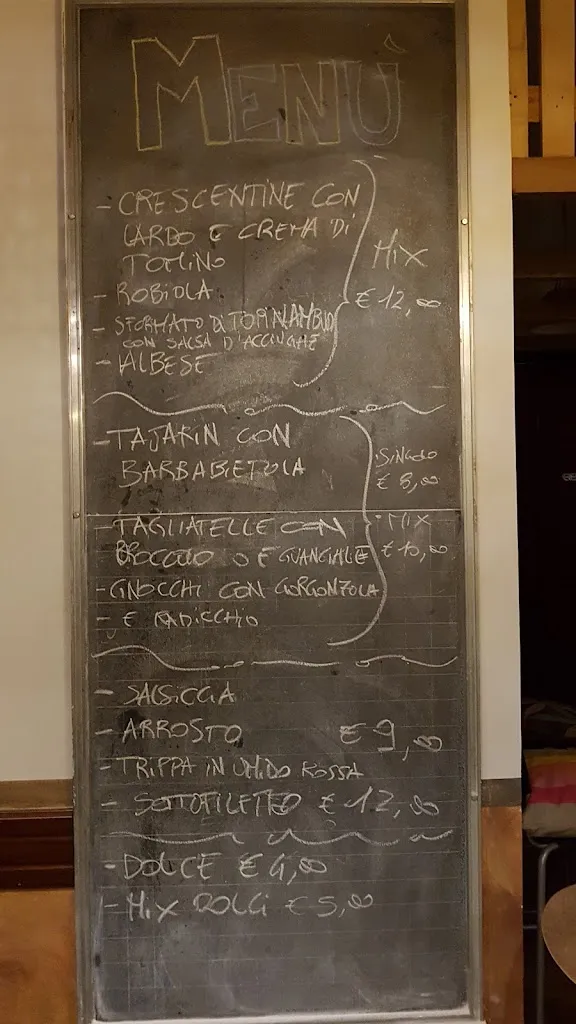 MENÙ
- CRESCENTINE CON
LARDO E CREMA DI
TOMINO
- ROBIOLA
- SFORMATO DI TOPINAMBUR
CON SALSA D'ACCIUGHE
- ALBESE
MIX
€ 12,00
- TAJARIN CON
BARBABIETOLA
- TAGLIATELLE CON
BROCCOLO E GUANCIALE
- GNOCCHI CON GORGONZOLA
- E RADICCHIO
SINGOLO
€ 8,00
MIX
€ 10,00
- SALSICCIA
- ARROSTO € 9,00
- TRIPPA IN UMIDO ROSSA
- SOTTOFILETTO € 12,00
- DOLCE € 4,00
- MIX DOLCI € 5,00